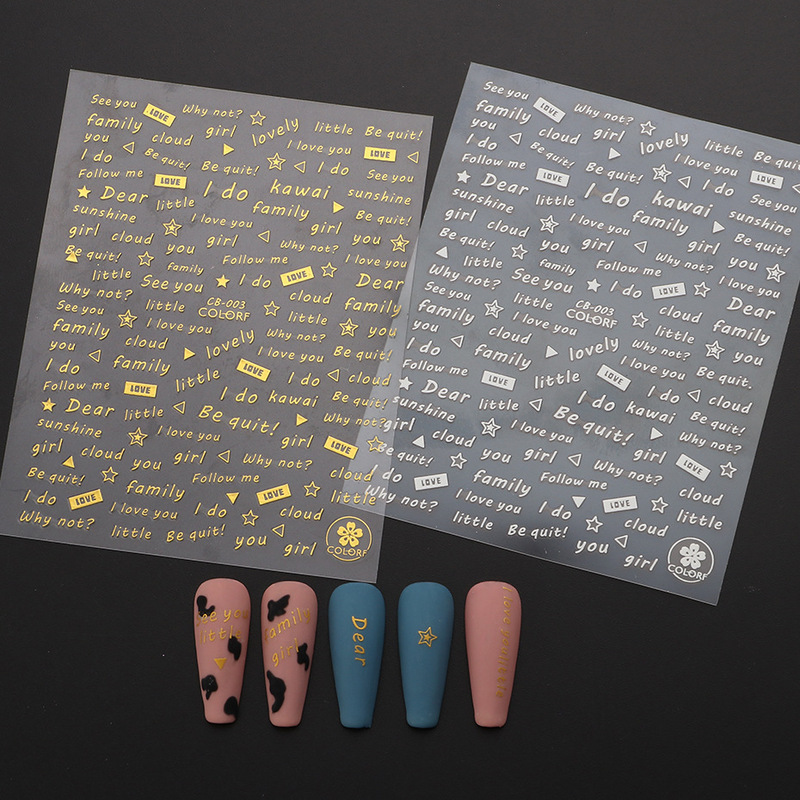 See you LOVE Why not?
family girl lovely little Be quit!
you cloud I love you LOVE
I do Be quit! Be quit! I do See you
Follow me LOVE I do kawai sunshine
Dear little family Be quit!
sunshine I love you girl you
girl cloud you Why not?
Be quit! family Follow me LOVE
little See you I do Dear
Why not? little CB-003 cloud family
See you COLORF little
family I love you Why not? you
you cloud lovely I love you
I do family LOVE I do cloud
Follow me LOVE little I do kawai Be quit!
Dear little Be quit! Why not?
sunshine I love you girl LOVE
girl cloud you girl Why not? cloud
Be quit! family Follow me
I do LOVE I love you I do LOVE little
Why not? little Be quit! cloud
you girl COLORF
See you LOVE Why not?
family girl lovely little Be quit
you cloud I love you LOVE
I do Be quit! Be quit! I do See you
Follow me LOVE I do kawai sunshine
Dear little family Be quit!
sunshine I love you girl you
girl cloud you Why not? I love you
Be quit! family Follow me LOVE
little See you I do Dear
Why not? little CB-003 cloud family
See you COLORF little
family I love you Why not? you
you cloud lovely I love you Be quit.
I do family LOVE I do cloud
Follow me LOVE little I do kawai Be quit!
Dear little Be quit! Why not?
sunshine I love you girl LOVE
girl cloud you girl Why not? cloud
Be quit! family Follow me
I do LOVE I love you I do LOVE little
Why not? little Be quit! cloud
you girl COLORF
See you
little
family
girl
Dear